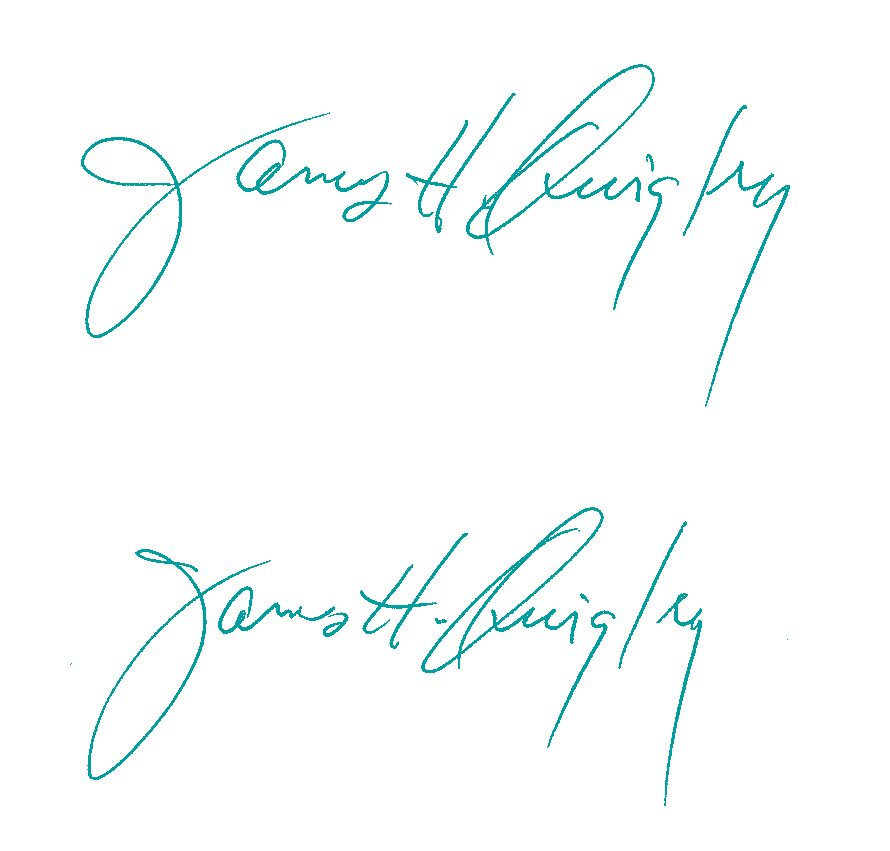 James H. Quigley
James H. Quigley